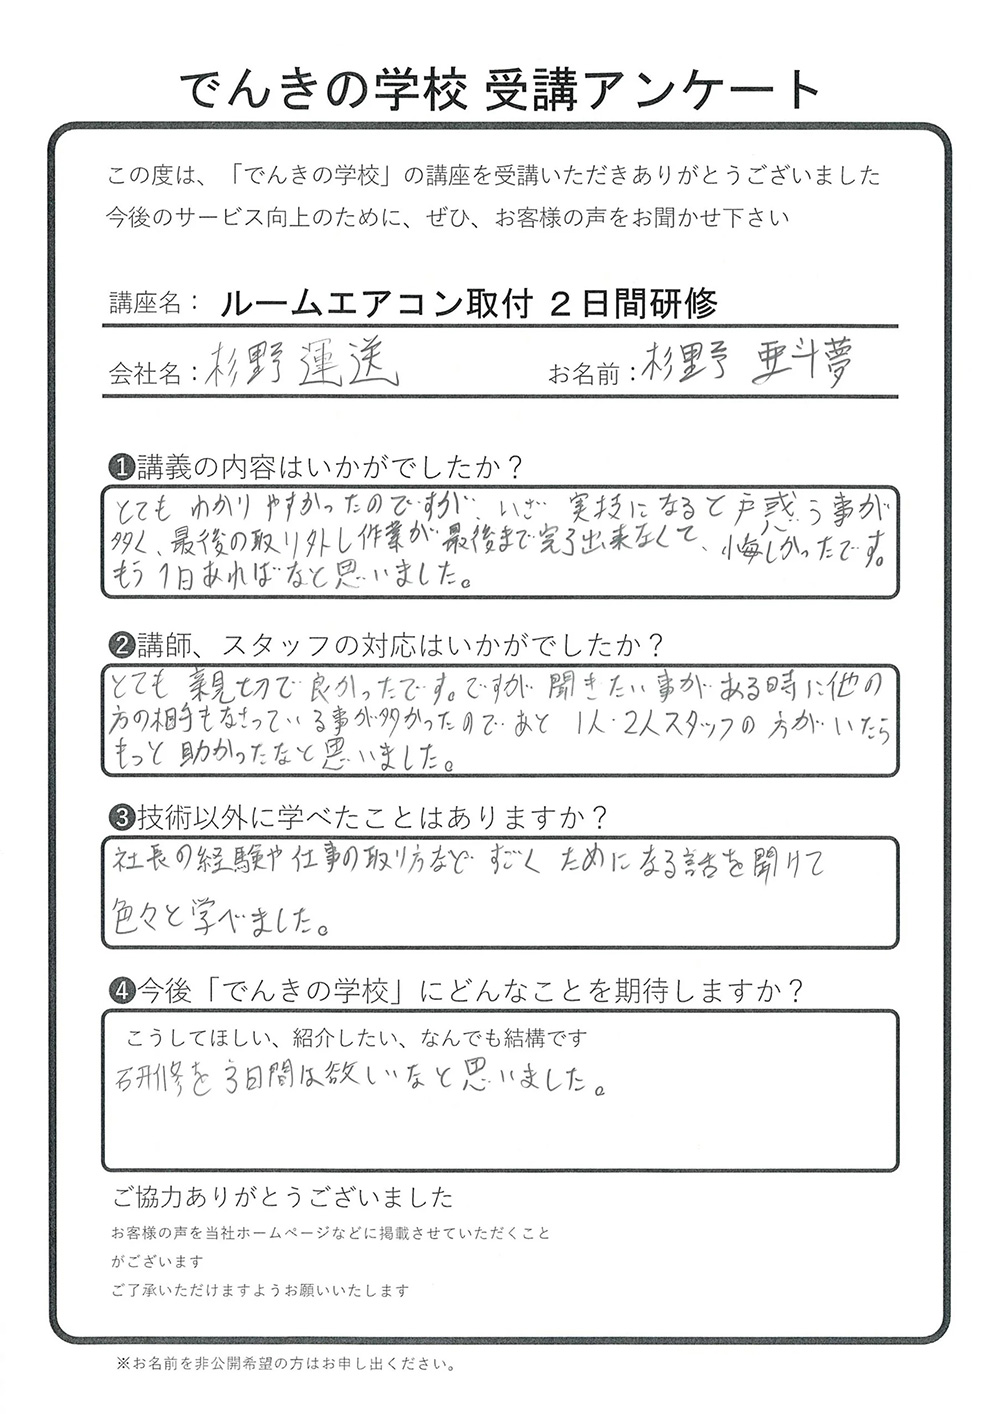 でんきの学校 受講アンケート
この度は、「でんきの学校」の講座を受講いただきありがとうございました
今後のサービス向上のために、ぜひ、お客様の声をお聞かせ下さい
講座名： ルームエアコン取付 2日間研修
会社名：杉野運送 お名前：杉野 亜斗夢
❶講義の内容はいかがでしたか？
とても わかりやすかったのですが、いざ 実技になると戸惑う事が
多く、最後の取り外し作業が最後まで完了出来なくて、悔しかったです。
もう1日あればなと思いました。
❷講師、スタッフの対応はいかがでしたか？
とても 親切で良かったです。ですが 聞きたい事がある時に他の
方の相手もなさっている事が多かったのであと 1人・2人スタッフの 方がいたら
もっと 助かったなと思いました。
❸技術以外に学べたことはありますか？
社長の経験や仕事の取り方など すごく ためになる話を聞けて
色々と学べました。
❹今後「でんきの学校」にどんなことを期待しますか？
こうしてほしい、紹介したい、なんでも結構です
研修を3日間は欲しいなと思いました。
ご協力ありがとうございました
お客様の声を当社ホームページなどに掲載させていただくこと
がございます
ご了承いただけますようお願いいたします
※お名前を非公開希望の方はお申し出ください。